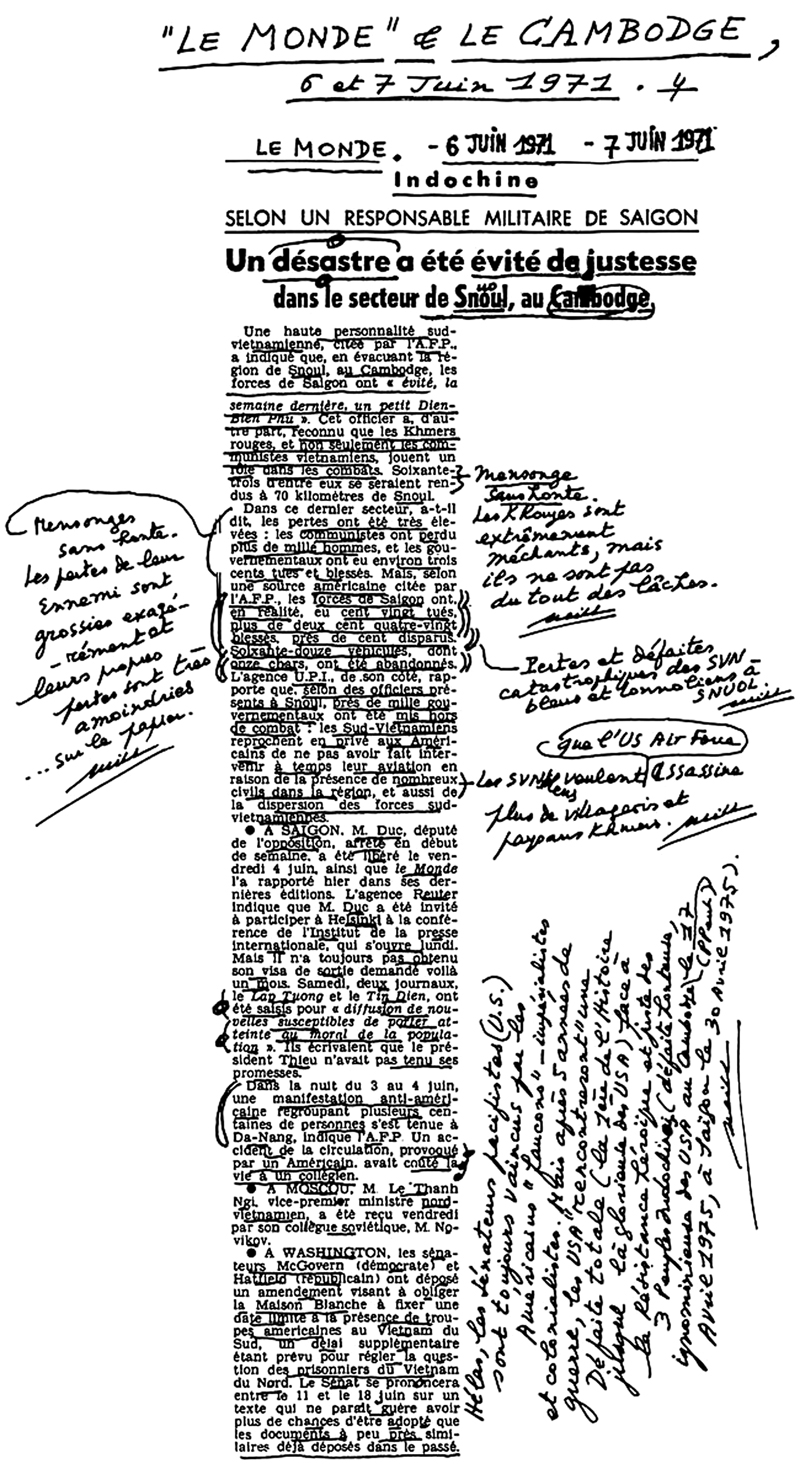 "LE MONDE" & LE CAMBODGE,
6 et 7 Juin 1971. 4
LE MONDE. - 6 JUIN 1971 - 7 JUIN 1971
Indochine
SELON UN RESPONSABLE MILITAIRE DE SAIGON
Un désastre a été évité de justesse
dans le secteur de Snoul, au Cambodge
Une haute personnalité sud-
vietnamienne, citée par l'A.F.P.,
a indiqué que, en évacuant la ré-
gion de Snoul, au Cambodge, les
forces de Saigon ont « évité, la
semaine dernière, un petit Dien-
Bien Phu ». Cet officier a, d'au-
tre part, reconnu que les Khmers
rouges, et non seulement les com-
munistes vietnamiens, jouent un
rôle dans les combats. Soixante-
trois d'entre eux se seraient ren-
dus à 70 kilomètres de Snoul.
Dans ce dernier secteur, a-t-il
dit, les pertes ont été très éle-
vées : les communistes ont perdu
plus de mille hommes, et les gou-
vernementaux ont eu environ trois
cents tués et blessés. Mais, selon
une source américaine citée par
l'A.F.P., les forces de Saigon ont
en réalité, eu cent vingt tués,
plus de deux cent quatre-vingt
blessés, près de cent disparus.
Soixante-douze véhicules, dont
onze chars, ont été abandonnés.
L'agence U.P.I., de son côté, rap-
porte que, selon des officiers pré-
sents à Snoul, près de mille gou-
vernementaux ont été mis hors
de combat : les Sud-Vietnamiens
reprochent en privé aux Améri-
cains de ne pas avoir fait inter-
venir à temps leur aviation en
raison de la présence de nombreux
civils dans la région, et aussi de
la dispersion des forces sud-
vietnamiennes.
● A SAIGON, M. Duc, député
de l'opposition, arrêté en début
de semaine, a été libéré le ven-
dredi 4 juin, ainsi que le Monde
l'a rapporté hier dans ses der-
nières éditions. L'agence Reuter
indique que M. Duc a été invité
à participer à Helsinki à la confé-
rence de l'Institut de la presse
internationale, qui s'ouvre lundi.
Mais il n'a toujours pas obtenu
son visa de sortie demandé voilà
un mois. Samedi, deux journaux,
le Lap Tuong et le Tin Dien, ont
été saisis pour « diffusion de nou-
velles susceptibles de porter at-
teinte au moral de la popula-
tion ». Ils écrivaient que le pré-
sident Thieu n'avait pas tenu ses
promesses.
Dans la nuit du 3 au 4 juin,
une manifestation anti-améri-
caine regroupant plusieurs cen-
taines de personnes s'est tenue à
Da-Nang, indique l'A.F.P. Un ac-
cident de la circulation, provoqué
par un Américain, avait coûté la
vie à un collégien.
● A MOSCOU, M. Le Thanh
Ngi, vice-premier ministre nord-
vietnamien, a été reçu vendredi
par son collègue soviétique, M. No-
vikov.
● A WASHINGTON, les séna-
teurs McGovern (démocrate) et
Hatfield (républicain) ont déposé
un amendement visant à obliger
la Maison Blanche à fixer une
date limite à la présence de trou-
pes américaines au Vietnam du
Sud, un délai supplémentaire
étant prévu pour régler la ques-
tion des prisonniers du Vietnam
du Nord. Le Sénat se prononcera
entre le 11 et le 18 juin sur un
texte qui ne paraît guère avoir
plus de chances d'être adopté que
les documents à peu près simi-
laires déjà déposés dans le passé.
Mensonges
sans honte.
Les pertes de leur
Ennemi sont
grossies exagé-
-rément et
leurs propres
pertes sont très
amoindries
... sur le papier.
Mensonge
sans honte.
Les K Rouges sont
extrêmement
méchants, mais
ils ne sont pas
du tout des lâches.
Pertes et défaites
catastrophiques des SVN
bleus et Lonnoliens à
SNUOL.
que l'US Air Force
Les SVNiens veulent assassine
plus de villageois et
paysans Khmers.
Hélas, les Sénateurs pacifistes (U.S.)
sont toujours vaincus par les
Américains "faucons"-impérialistes
et colonialistes. Mais après 5 années de
guerre, les USA "rencontreront" une
Défaite totale (la 1ère de l'Histoire
jusque là glorieuse des USA) face à
la Résistance héroïque et juste des
3 Peuples Indochinois (défaite honteuse,
ignominieuse des USA au Cambodge le 17
Avril 1975 (PPenh), à Saïgon le 30 Avril 1975).